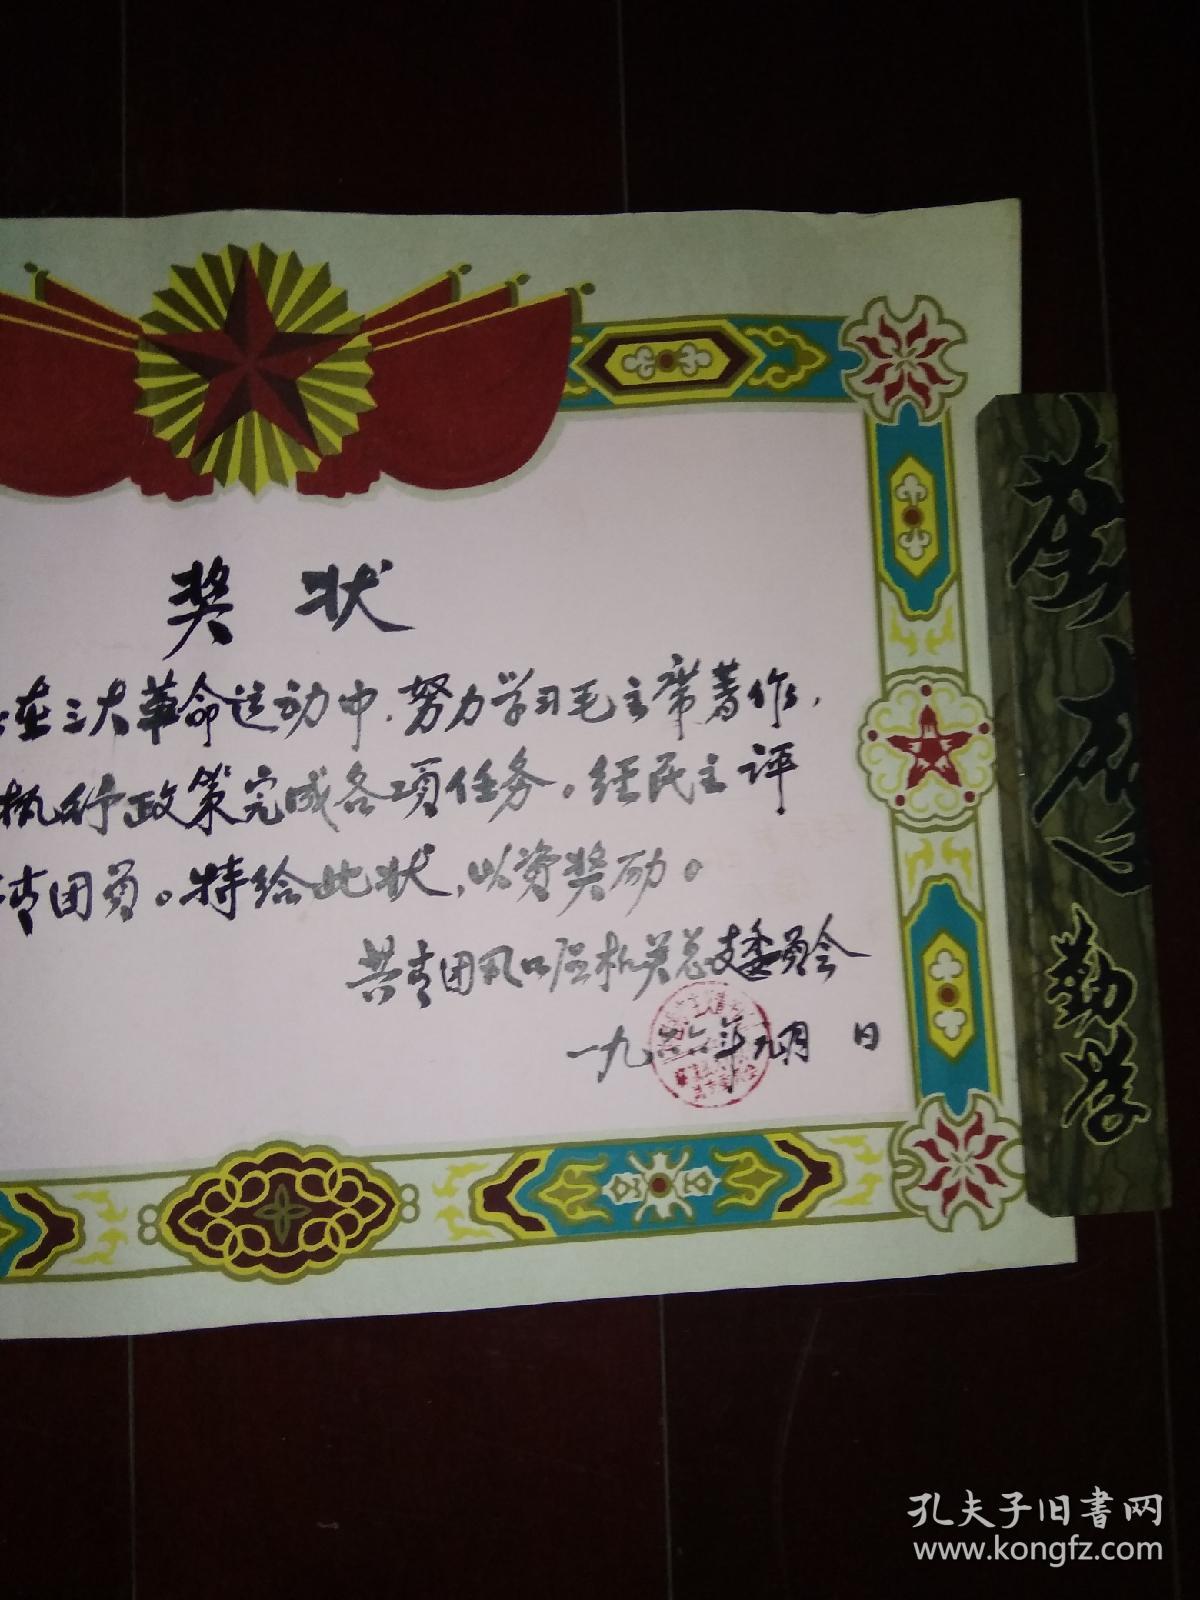 奖状
在三大革命运动中,努力学习毛主席著作,
执行政策完成各项任务。经民主评
青团员。特给此状,以资奖励。
共青团风口区机关总支委员会
一九六六年九月 日
勤学
孔夫子旧书网
www.kongfz.com